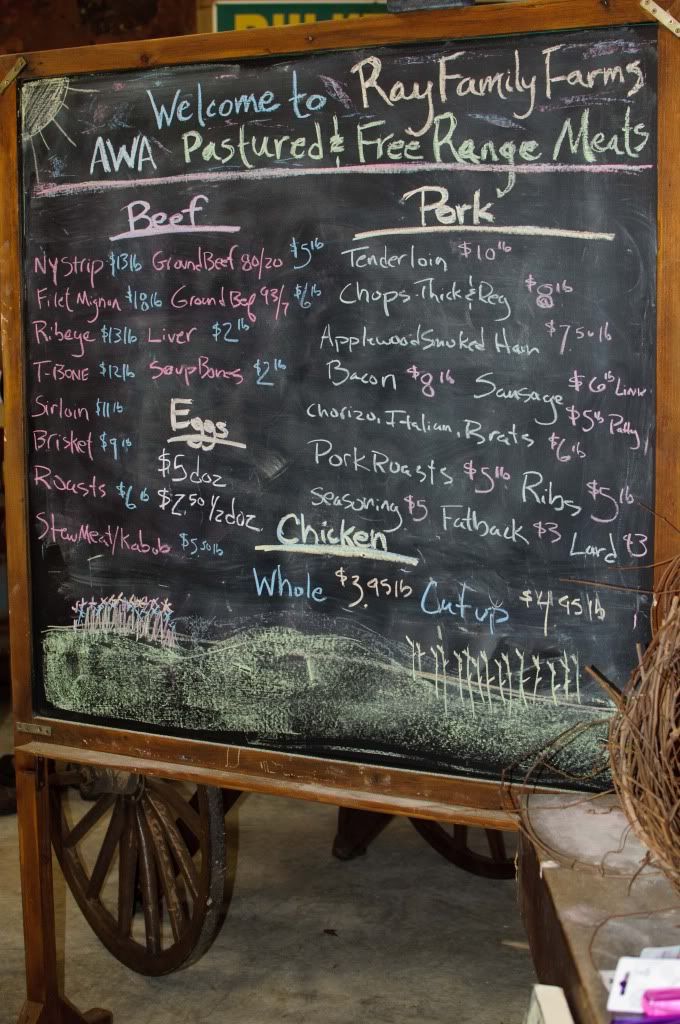 Welcome to Ray Family Farms
AWA Pastured & Free Range Meats
Beef
NY Strip $13lb Ground Beef 80/20 $5lb
Filet Mignon $18lb Ground Beef 93/7 $6lb
Ribeye $13lb Liver $2lb
T-BONE $12lb Soup Bones $2lb
Sirloin $11lb
Brisket $9lb
Roasts $6lb
Stew Meat/Kabob $5.50lb
Eggs
$5 doz
$2.50 1/2 doz.
Pork
Tenderloin $10lb
Chops-Thick & Reg $8lb
Applewood Smoked Ham $7.50lb
Bacon $8lb Sausage $6lb Link
$5lb Patty
Chorizo, Italian, Brats $6lb
Pork Roasts $5lb Ribs $5lb
Seasoning $5 Fatback $3 Lard $3
Chicken
Whole $3.95lb Cut up $4.95lb